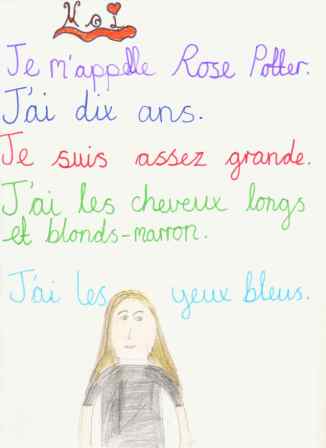 Moi
Je m'appelle Rose Potter.
J'ai dix ans.
Je suis assez grande.
J'ai les cheveux longs
et blonds-marron.
J'ai les yeux bleus.